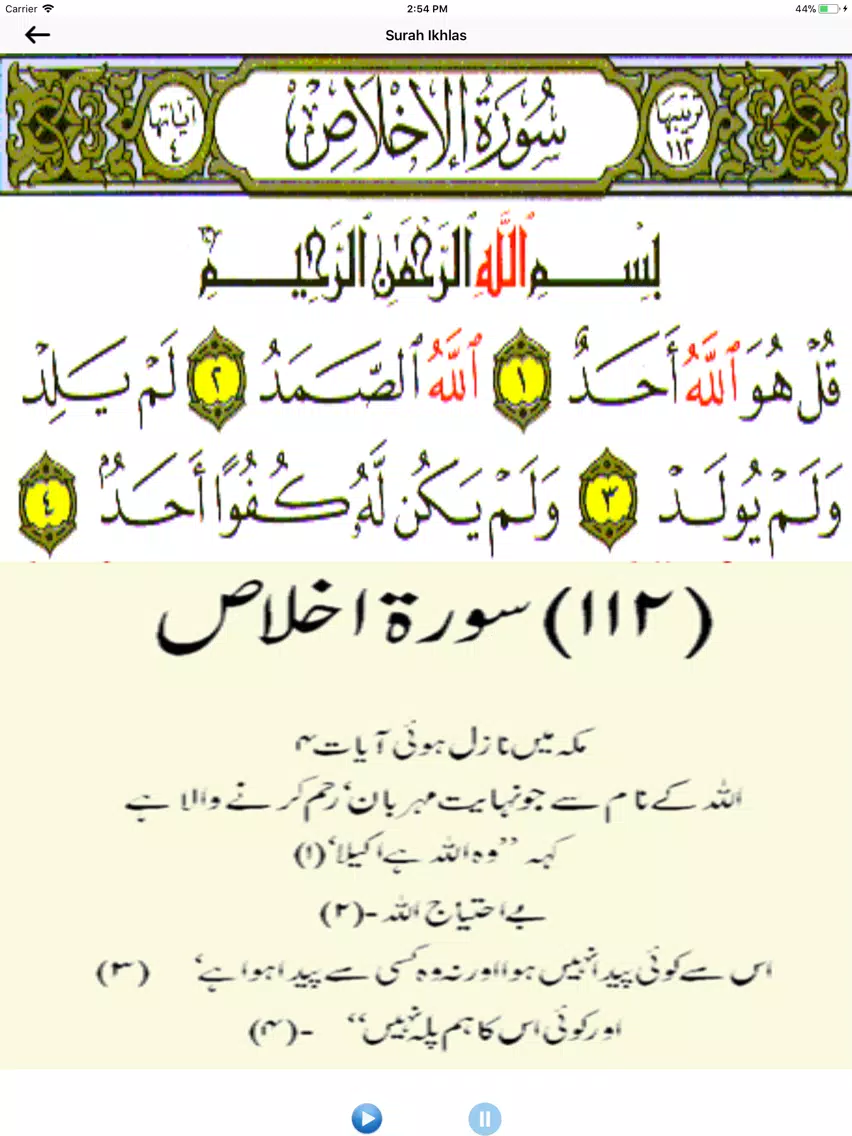 Carrier 2:54 PM 44%
Surah Ikhlas
ترتيبها ١١٢ سُورَةُ الإِخْلَاصِ آياتها ٤
بِسْمِ ٱللَّهِ ٱلرَّحْمَٰنِ ٱلرَّحِيمِ
قُلْ هُوَ ٱللَّهُ أَحَدٌ ١ ٱللَّهُ ٱلصَّمَدُ ٢ لَمْ يَلِدْ
وَلَمْ يُولَدْ ٣ وَلَمْ يَكُن لَّهُۥ كُفُوًا أَحَدٌۢ ٤
(١١٢) سورة اخلاص
مکہ میں نازل ہوئی آیات ۴
اللہ کے نام سے جو نہایت مہربان، رحم کرنے والا ہے
کہہ ”وہ اللہ ہے اکیلا، (۱)
بے احتیاج اللہ -(۲)
اس سے کوئی پیدا نہیں ہوا اور نہ وہ کسی سے پیدا ہوا ہے، (۳)
اور کوئی اس کا ہم پلہ نہیں“ -(۴)